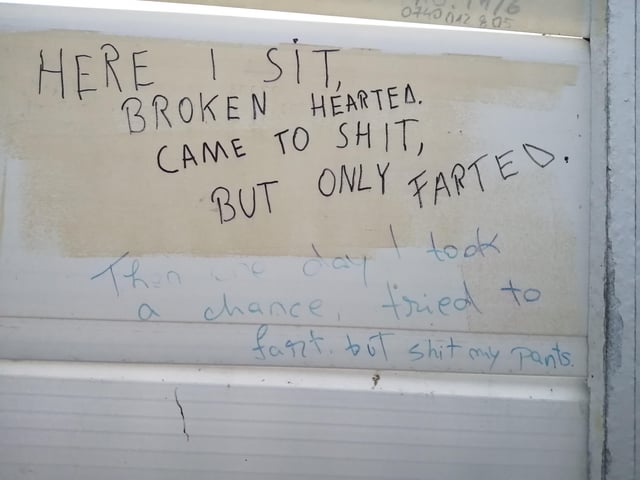 HERE I SIT,
BROKEN HEARTED.
CAME TO SHIT,
BUT ONLY FARTED.
Then one day I took
a chance, tried to
fart. but shit my pants.